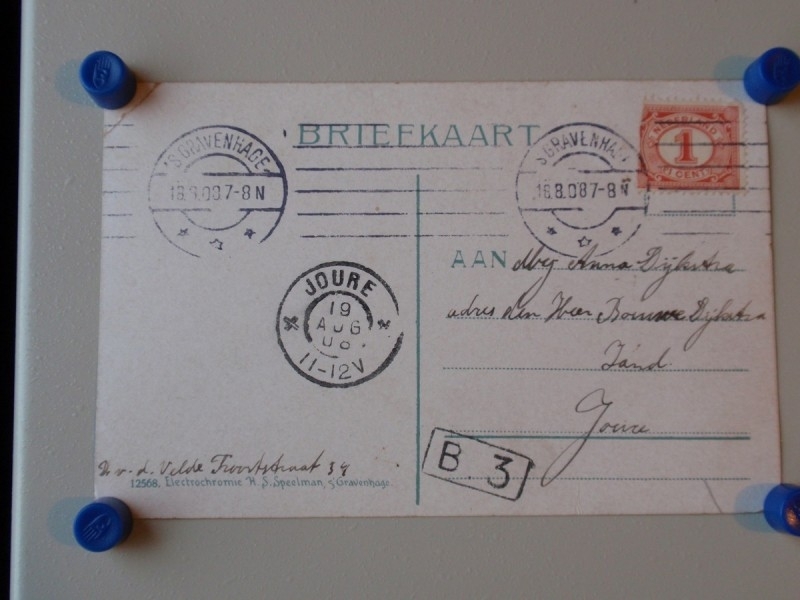 BRIEFKAART
'SGRAVENHAGE
18.8.08 7-8N
'SGRAVENHAGE
18.8.08 7-8N
NEDERLAND
1
CENT
AAN Mej Anna Dijkstra
adres den Heer Bouwe Dijkstra
Zand
Joure
JOURE
19
AUG
08
11-12V
B. 3
v. d. Velde
12568. Electrochromie N. S. Speelman, 's Gravenhage.